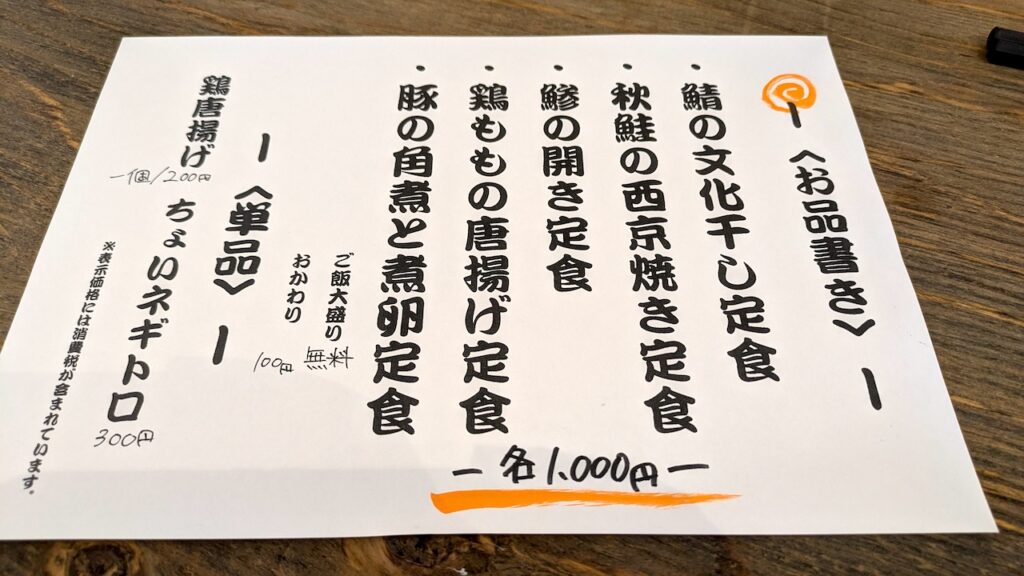 ー〈お品書き〉ー
・鯖の文化干し定食
・秋鮭の西京焼き定食
・鯵の開き定食
・鶏ももの唐揚げ定食
・豚の角煮と煮卵定食
ー各1.000円ー
ご飯大盛り 無料
おかわり 100円
ー〈単品〉ー
鶏唐揚げ 一個/200円
ちょいネギトロ 300円
※表示価格には消費税が含まれています。